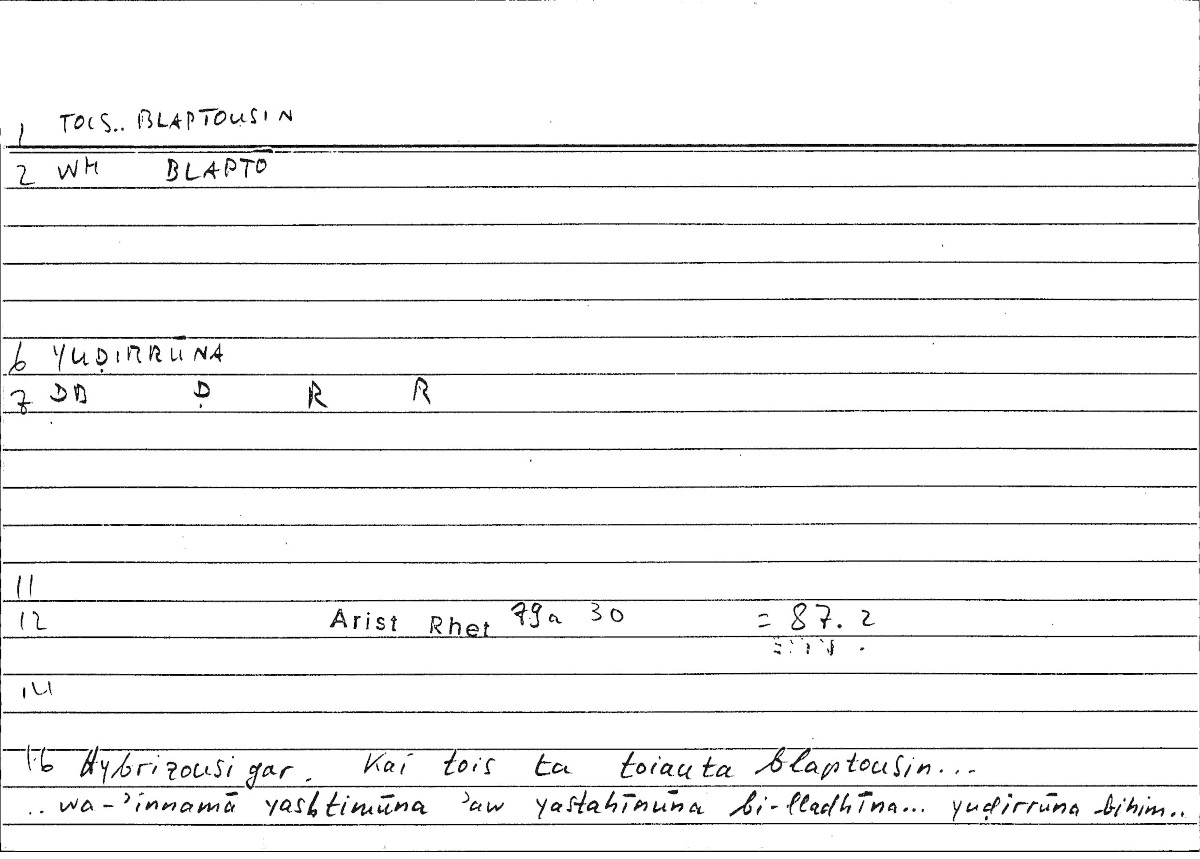 1 TOIS.. BLAPTOUSIN
2 WH BLAPTO
6 YUḌIRRŪNA
7 DB Ḍ R R
11
12 Arist Rhet 79a 30 = 87. 2
14
16 Hybrizousi gar. Kai tois ta toiauta blaptousin...
..wa-ʾinnamā yashtimūna ʾaw yastahīnūna bi-lladhīna... yuḍirrūna bihim..